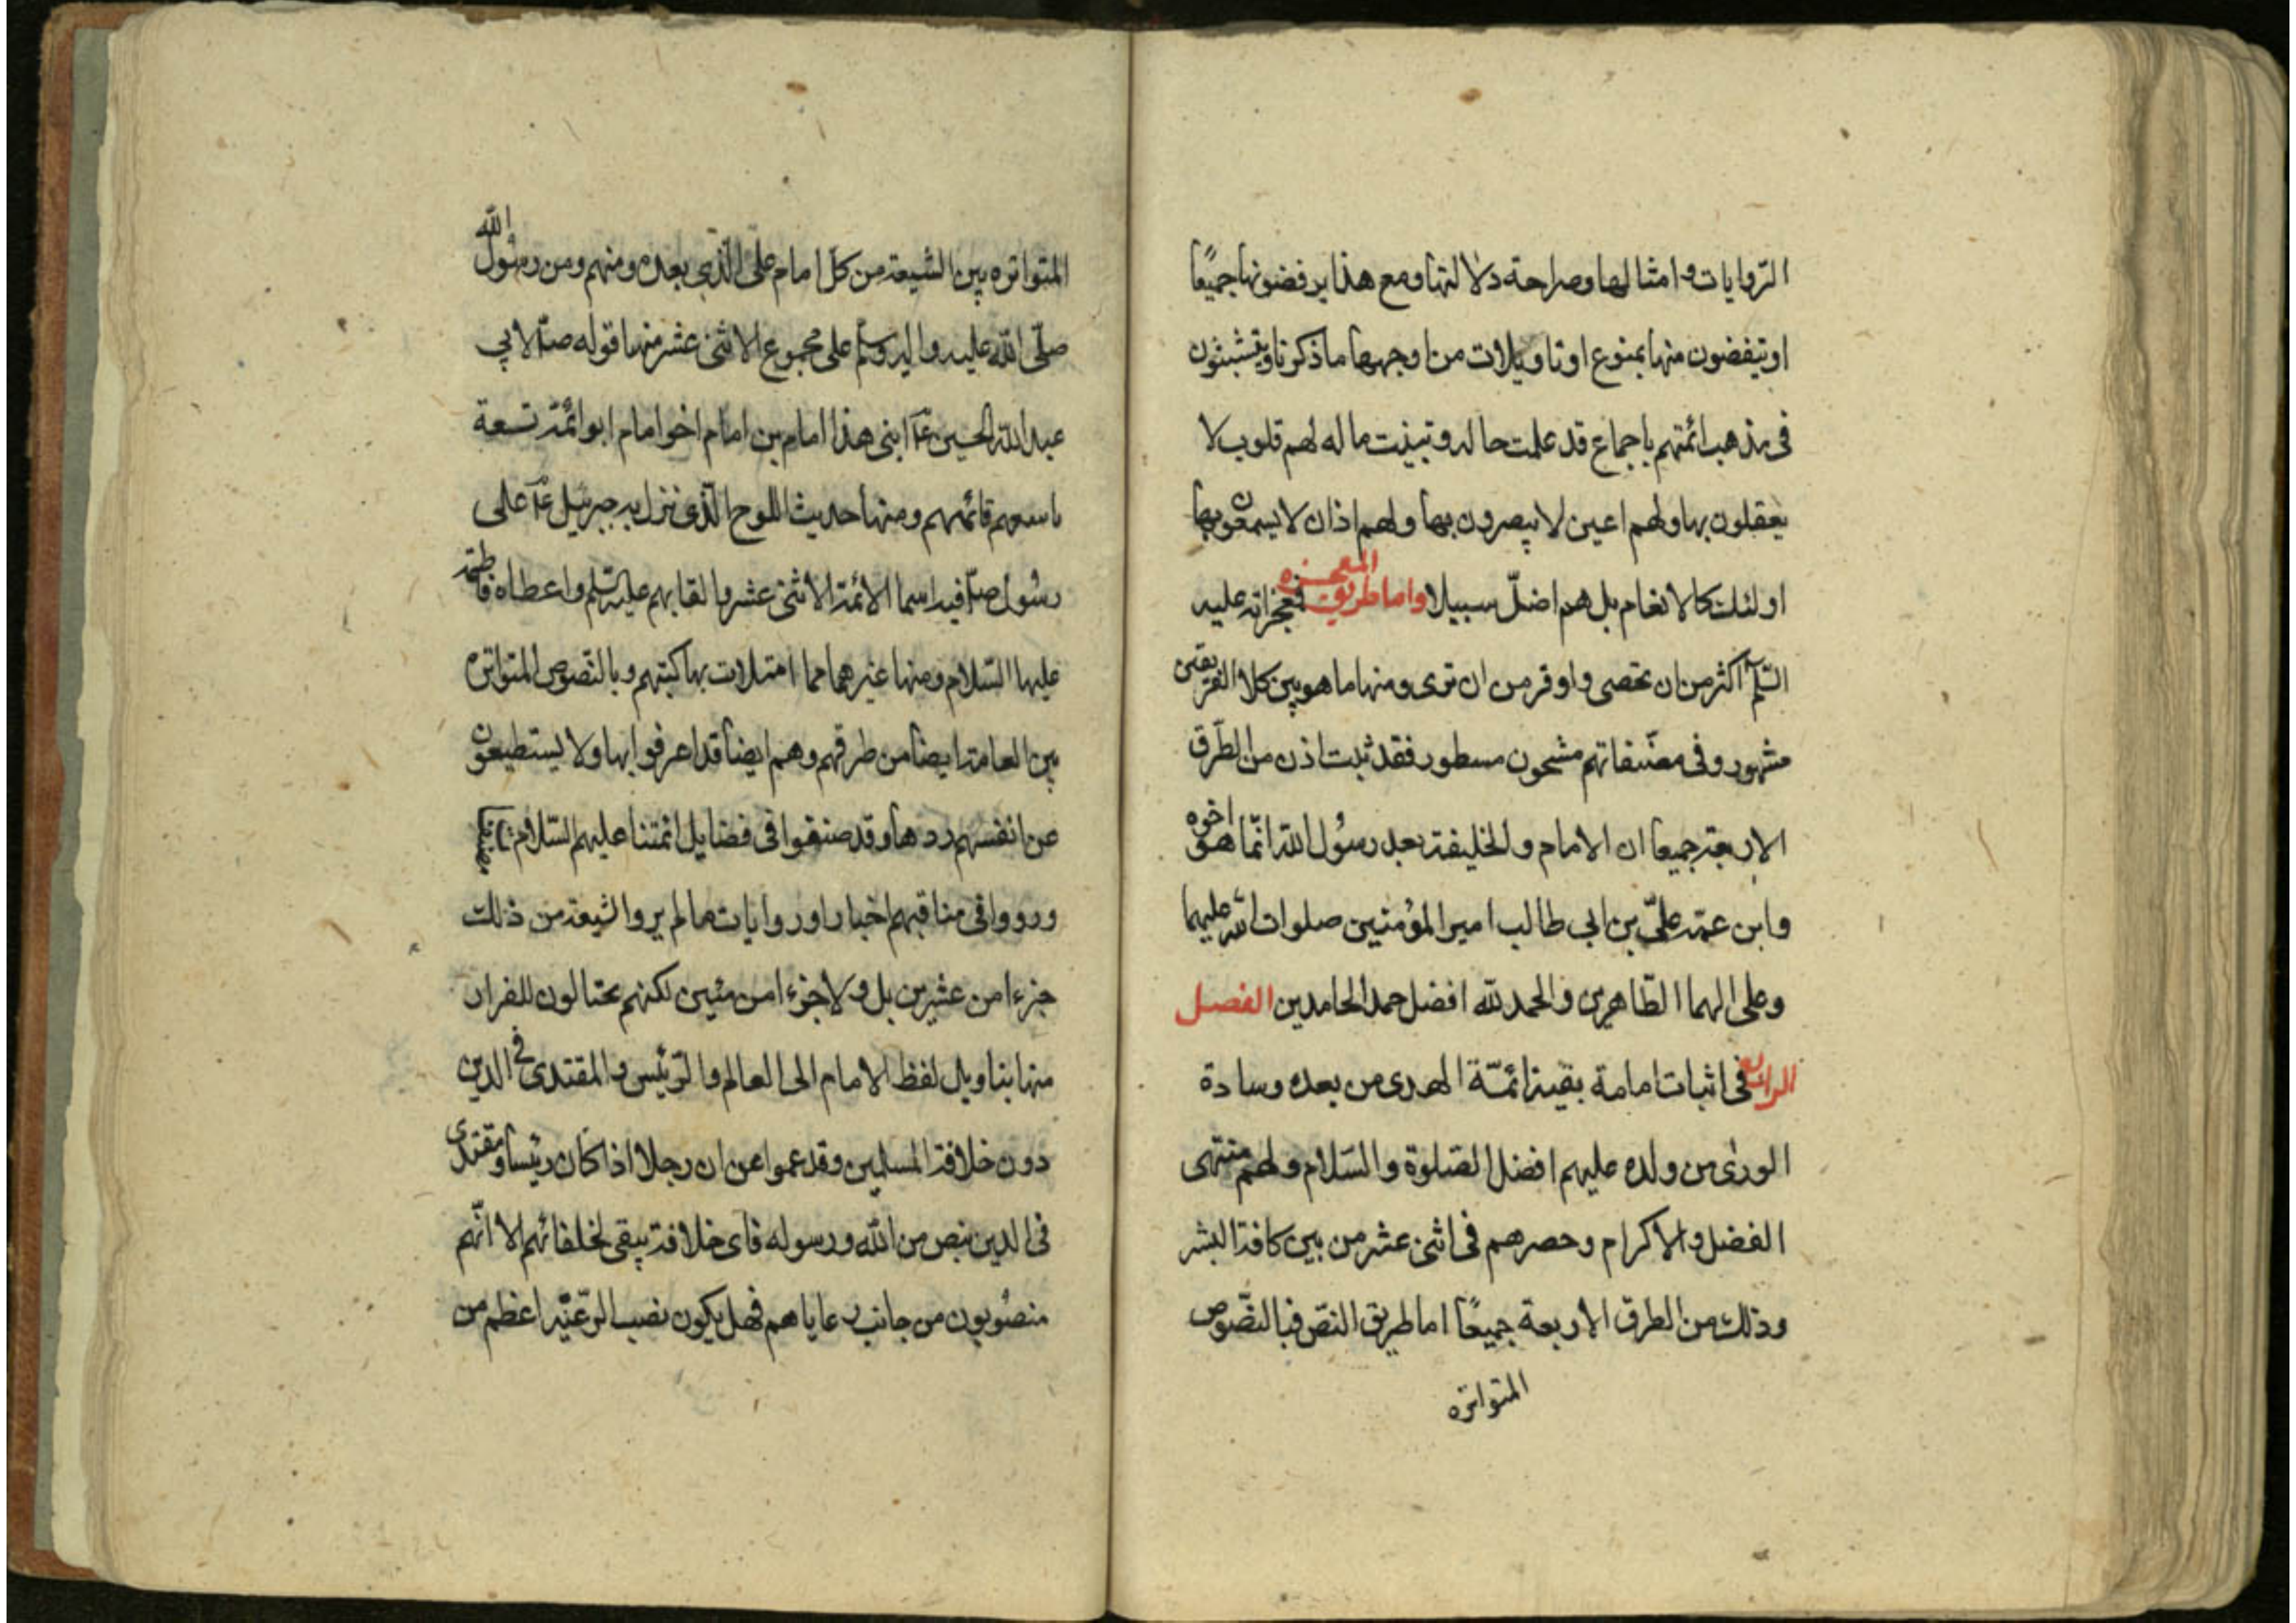 الروايات وامثالها وصراحة دلالتها ومع هذا يرفضونها جميعًا
او يتفضون منها بمنوع او تاويلات من اوجهها ما ذكرنا ويتشبثون
فى مذهب ائمتهم باجماع قد علمت حاله وتبينت ماله لهم قلوب لا
يعقلون بها ولهم اعين لا يبصرون بها ولهم اذان لا يسمعون بها
اولئك كالانعام بل هم اضلّ سبيلا واما طريق المعجزه فمعجزاته عليه
السّلم اكثر من ان تحصى واوفر من ان توى ومنها ما هو بين كلا الفريقين
مشهور وفى مصنّفاتهم مشحون مسطور فقد ثبت اذن من الطّرق
الاربعة جميعا ان الامام والخليفة بعد رسُول اللّه انّما هو اخوه
وابن عمّه علىّ بن ابى طالب امير المؤمنين صلوات اللّه عليهما
وعلى الهما الطّاهرين والحمد للّه افضل حمد الحامدين الفصل
الرابع فى اثبات امامة بقية ائمّة الهدى من بعده وسادة
الورى من ولده عليهم افضل الصّلوة والسّلام ولهم منتهى
الفضل والاكرام وحصرهم فى اثنى عشر من بين كافة البشر
وذلك من الطرق الاربعة جميعًا اما طريق النصّ فبالنصّوص
المتواتره
المتواتره بين الشيعة من كل امام على الّذي بعده ومنهم ومن رسُول اللّه
صلّى اللّه عليه واله وسلم على مجموع الاثنى عشر منها قوله صلّ لابي
عبد اللّه الحسين عم ابنى هذا امام بن امام اخو امام ابو ائمّة تسعة
تاسعهم قائمهم ومنها حديث اللوح الّذى نزل به جبرئيل عم على
رسُول صلّ فيه اسما الائمة الاثنى عشر والقابهم عليهم السّلم واعطاه فاطمة
عليها السّلام ومنها غيرهما مما امتلات بها كتبهم وبالنّصوص المتواتره
بين العامة ايضا من طرقهم وهم ايضا قد اعرفوا بها ولا يستطيعون
عن انفسهم ردها وقد صنفوا فى فضايل ائمتنا عليهم السّلام
ورووا فى مناقبهم اخبارا وروايات ما لم يروا لشيعة من ذلك
جزءا من عشرين بل ولا جزءا من مئين لكنهم يحتالون للفرار
منها بتاويل لفظ الامام الى العالم والرّئيس والمقتدى فى الدين
دون خلافة المسلمين وقد عموا عن ان رجلا اذا كان رئيسا ومقتدى
فى الدين بنص من اللّه ورسوله فاى خلافة تبقى لخلفائهم الا انّهم
منصُوبون من جانب رعاياهم فهل يكون نصب الرّعيّه اعظم من